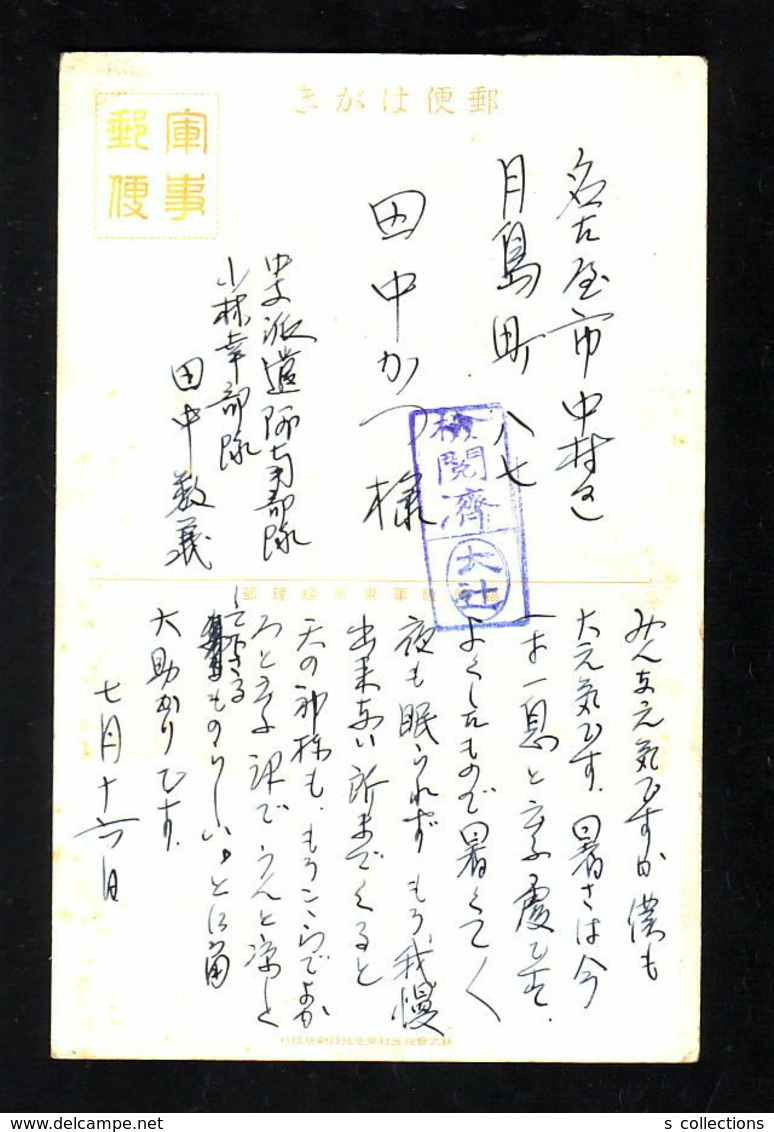 郵便はがき
軍事
郵便
名古屋市中村区
月島町八七
田中かつ様
検閲済
大辻
中支派遣
小林幸部隊
田中数義
みんな元気ですか 僕も
大元気です。暑さは今
一息と云ふ処です。
よくしたもので暑くて
夜も眠られず もう我慢
出来ない所までくると
天の神様も、もうこゝらでよか
ろと云ふ訳でうんと涼しく
して下さる
ものらしい。とに角
大助かりです。
七月十六日
s collections